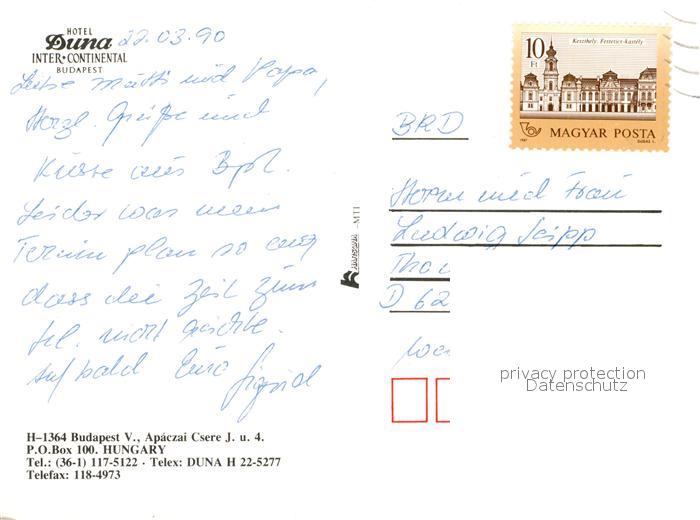 HOTEL
Duna 22.03.90
INTER·CONTINENTAL
BUDAPEST
Liebe Mutti und Papa,
Herzl. Grüße und
Küsse aus Bpt.
Leider war mein
Terminplan so eng
dass die Zeit zum
Tel. nicht reichte.
Auf bald Eure Sigrid
H–1364 Budapest V., Apáczai Csere J. u. 4.
P.O.Box 100. HUNGARY
Tel.: (36-1) 117-5122 · Telex: DUNA H 22-5277
Telefax: 118-4973
–MTI
Keszthely. Festetics-kastély
10 Ft
MAGYAR POSTA
1987
DUDÁS L.
BRD
Herrn und Frau
Ludwig Seipp
D 62
privacy protection
Datenschutz